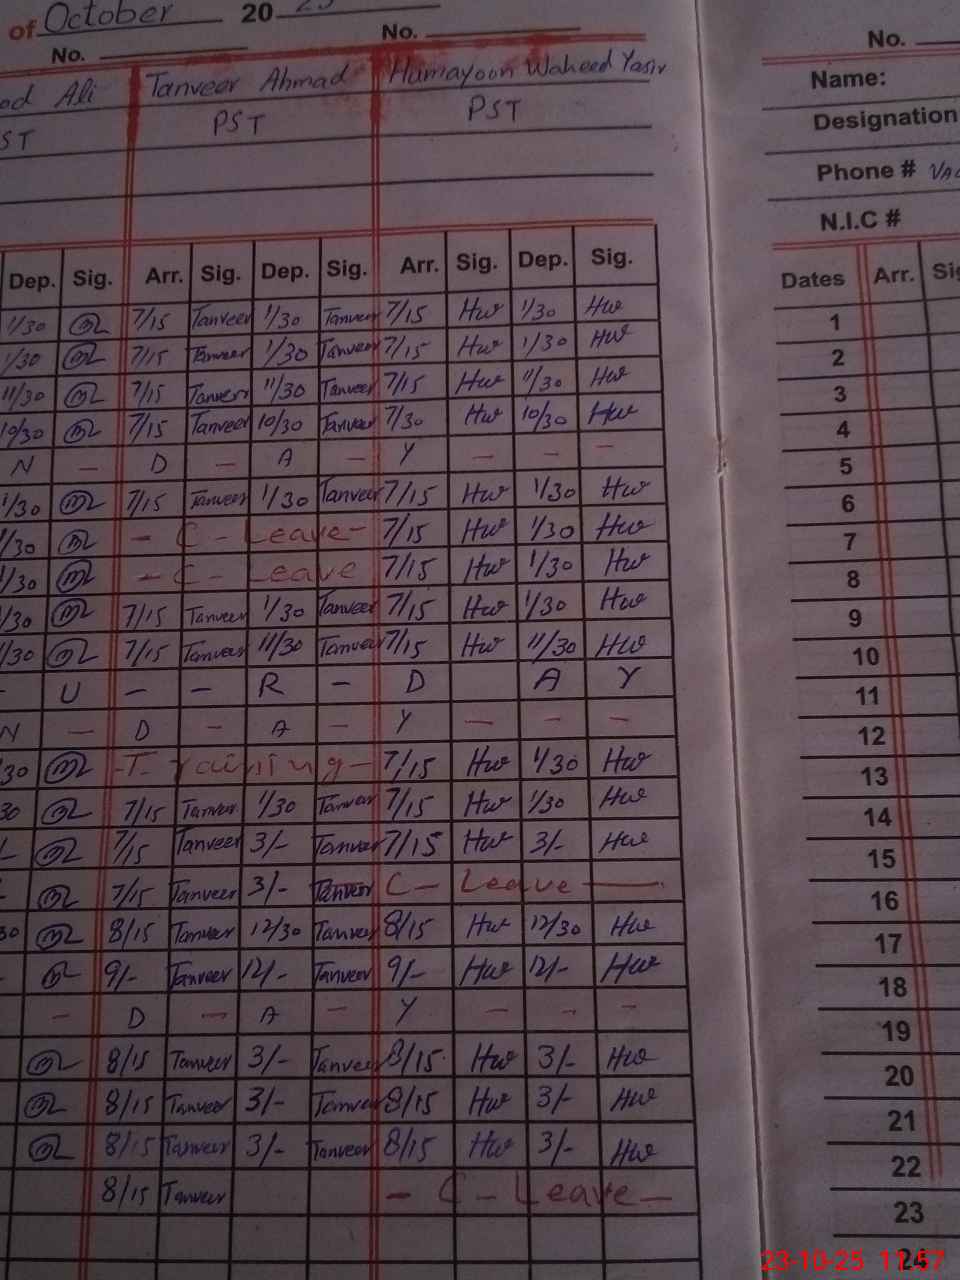 of October 20 25
No. No. No.
ad Ali Tanveer Ahmad Humayoon Waheed Yasir Name:
ST PST PST Designation
Phone #
N.I.C #
Dep. Sig. Arr. Sig. Dep. Sig. Arr. Sig. Dep. Sig. Dates Arr. Sig
1/30 7/15 Tanveer 1/30 Tanveer 7/15 Hw 1/30 Hw 1
1/30 7/15 Tanveer 1/30 Tanveer 7/15 Hw 1/30 Hw 2
11/30 7/15 Tanveer 11/30 Tanveer 7/15 Hw 11/30 Hw 3
10/30 7/15 Tanveer 10/30 Tanveer 7/30 Hw 10/30 Hw 4
N - D - A - Y - - - 5
1/30 7/15 Tanveer 1/30 Tanveer 7/15 Hw 1/30 Hw 6
1/30 - C - Leave - 7/15 Hw 1/30 Hw 7
1/30 - C - Leave 7/15 Hw 1/30 Hw 8
1/30 7/15 Tanveer 1/30 Tanveer 7/15 Hw 1/30 Hw 9
1/30 7/15 Tanveer 11/30 Tanveer 7/15 Hw 11/30 Hw 10
- U - - R - D A Y 11
N - D - A - Y - - - 12
30 - Training - 7/15 Hw 1/30 Hw 13
30 7/15 Tanveer 1/30 Tanveer 7/15 Hw 1/30 Hw 14
/- 7/15 Tanveer 3/- Tanveer 7/15 Hw 3/- Hw 15
- 7/15 Tanveer 3/- Tanveer C - Leave - 16
30 8/15 Tanveer 12/30 Tanveer 8/15 Hw 12/30 Hw 17
- 9/- Tanveer 12/- Tanveer 9/- Hw 12/- Hw 18
- D - A - Y - - - 19
8/15 Tanveer 3/- Tanveer 8/15 Hw 3/- Hw 20
8/15 Tanveer 3/- Tanveer 8/15 Hw 3/- Hw 21
8/15 Tanveer 3/- Tanveer 8/15 Hw 3/- Hw 22
8/15 Tanveer - C - Leave - 23
24
23-10-25 11:57